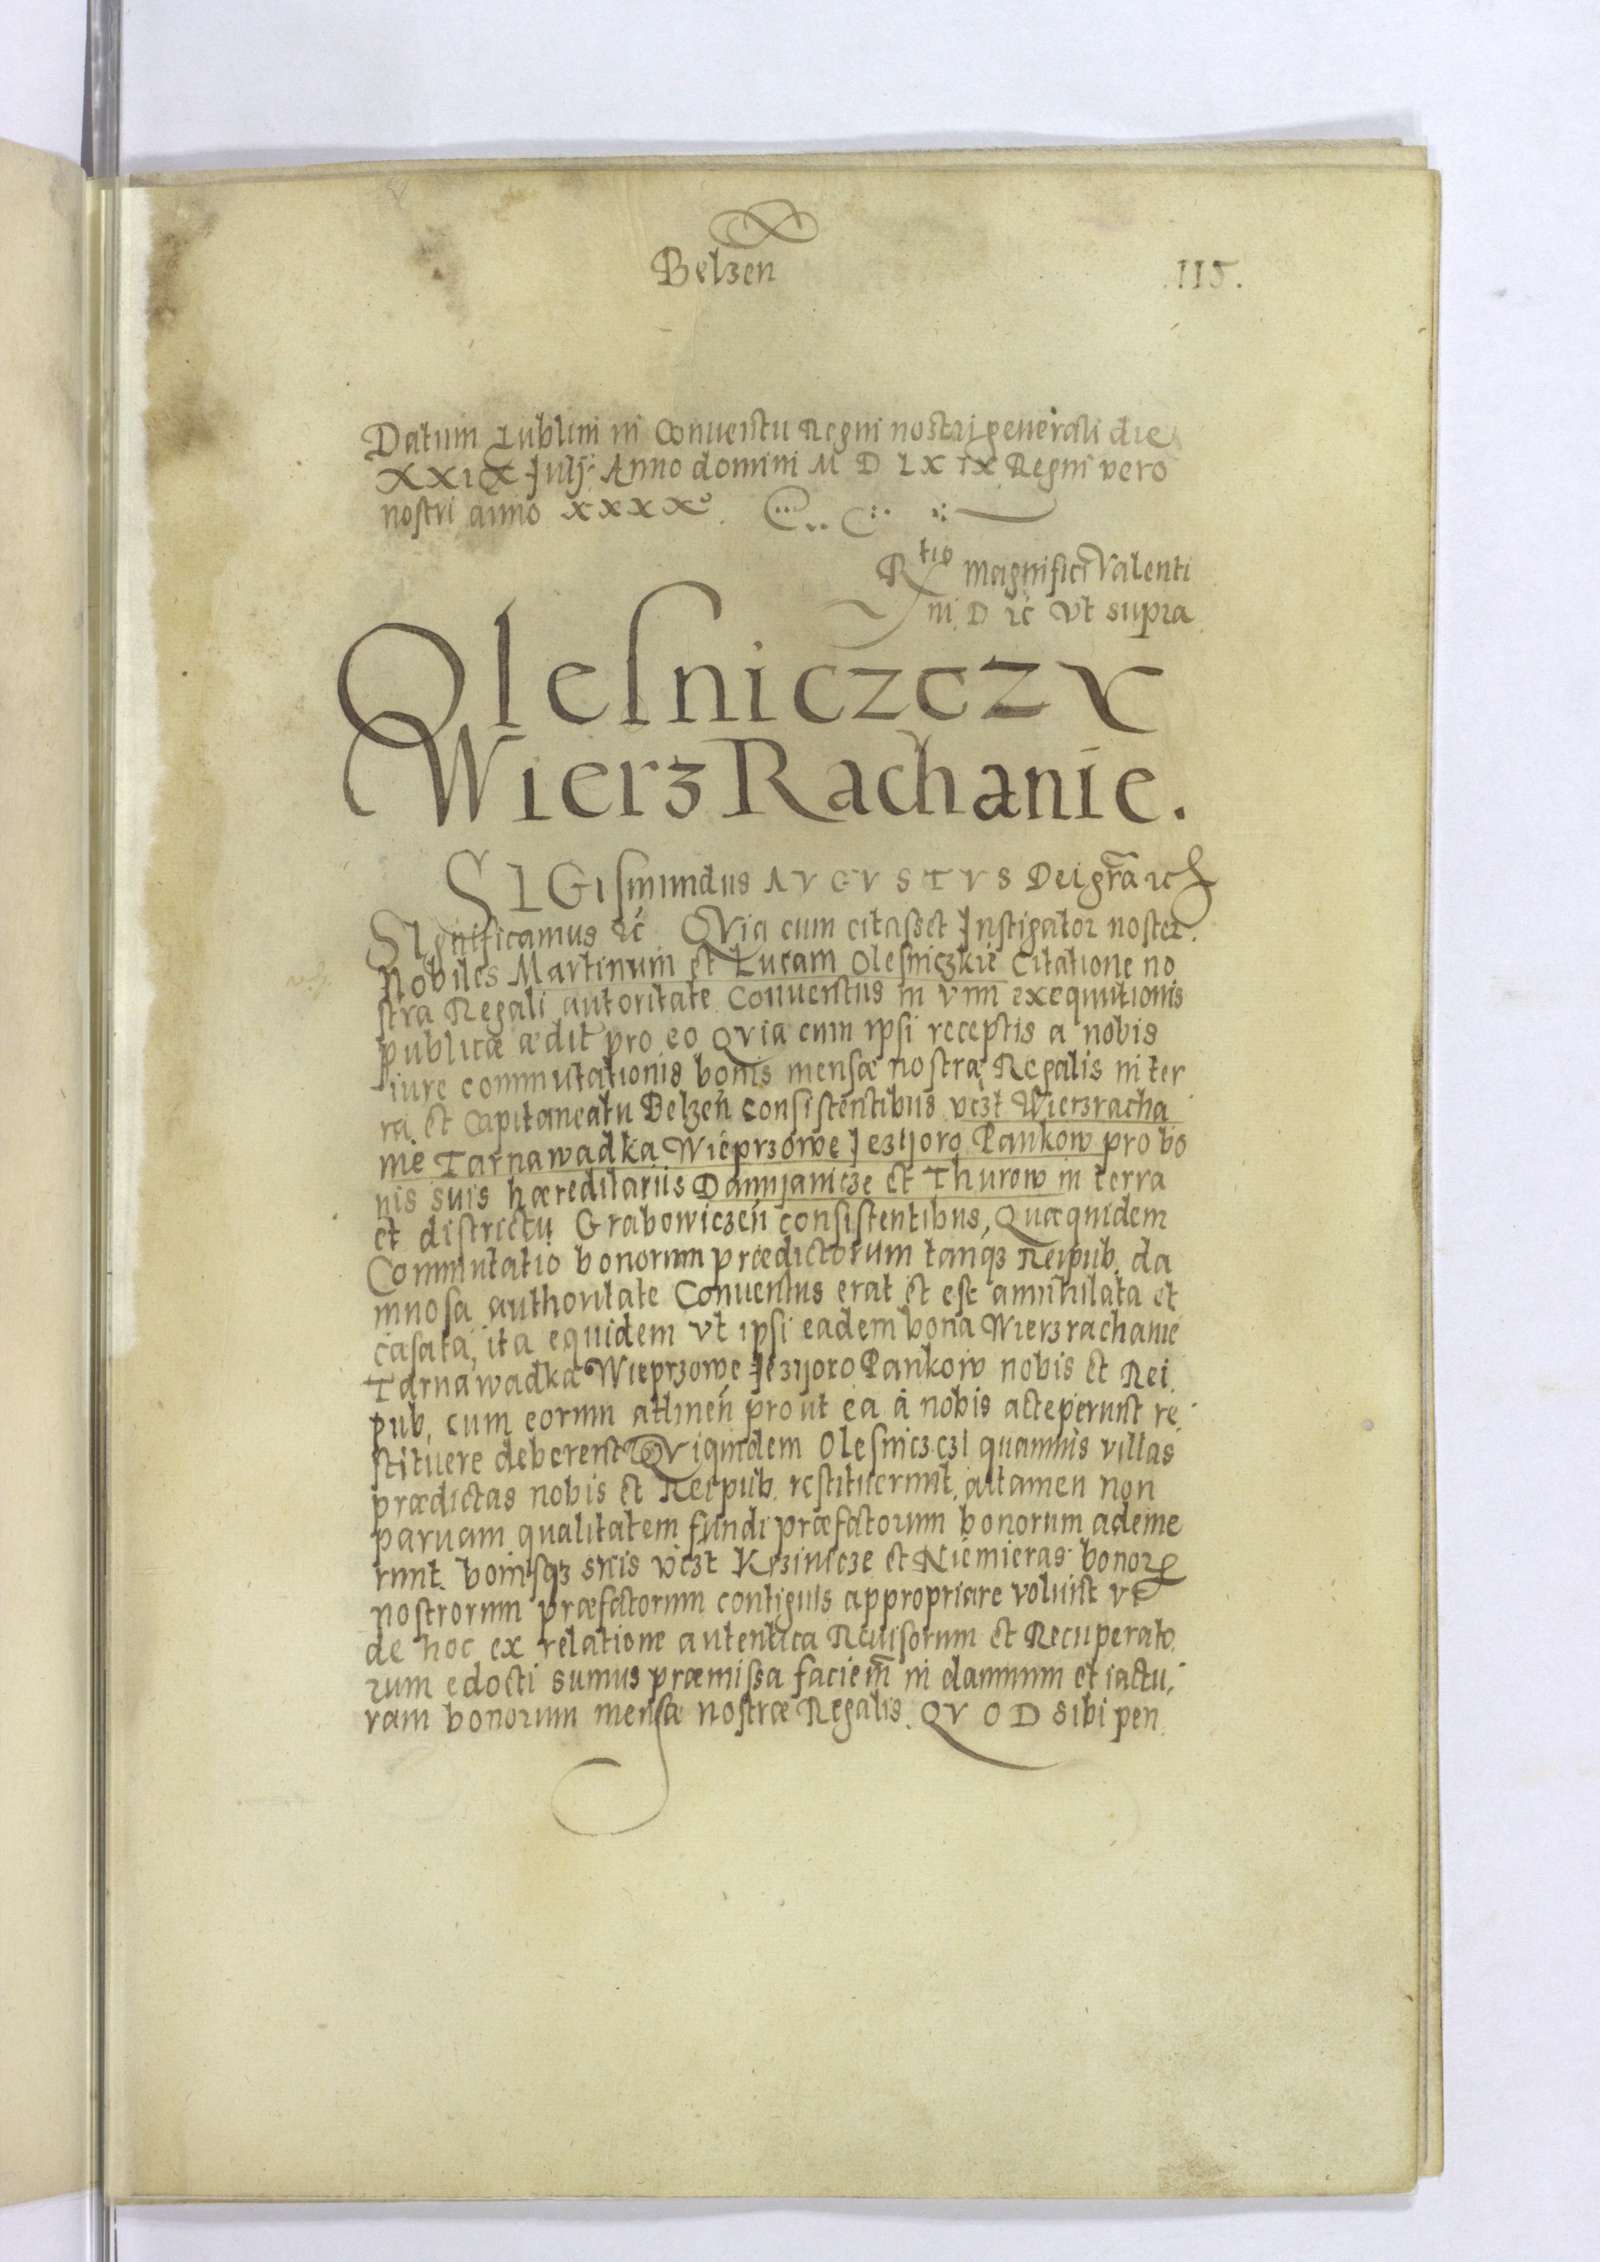 Belzen
115.
Datum Lublini in Conuentu Regni nostri generali die
XXIX Julij. Anno domini M D LXIX Regni vero
nostri anno XXXXo.
Rtio Magnifici Valenti
ni D ꝛc vt supra
Olesniczczy
Wierz Rachanie.
SIGismundus AVGVSTVS Dei gra ꝛc
SIgnificamus ꝛc QVia cum citasset Instigator noster
Nobiles Martinum et Lucam Olesniczkie Citatione no
stra Regali autoritate Conuentus in vim exequutionis
publicæ ædit pro eo QVia cum ipsi receptis a nobis
iure commutationis bonis mensæ nostræ Regalis in ter
ra et Capitaneatu Belzen consistentibus vczt Wierzracha
nie Tarnawadka Wieprzowe Jezyoro Pankow pro bo
nis suis hæreditariis Dannjanicze et Thurow in terra
et districtu Grabowiczen consistentibus, Quæquidem
Commutatio bonorum prædictorum tanqz Reipub. da
mnosa authoritate Conuentus erat et est annihilata et
casata, ita equidem vt ipsi eadem bona Wierzrachanie
Tarnawadka Wieprzowe Jezyoro Pankow nobis et Rei
pub, cum eorum attinen prout ea à nobis acceperunt re
stituere deberent QViquidem Olesniczczi quamuis villas
prædictas nobis et Reipub. restituerunt, attamen non
paruam qualitatem fundi præfatorum bonorum ademe
runt. bonisqz suis vczt Krzinicze et Niemieras bonorꝝ
nostrorum præfatorum contiguis appropriare voluint vt
de hoc ex relatione autentica Reuisorum et Recuperato
rum edocti sumus præmissa faciem in damnum et iactu,
ram bonorum mensæ nostræ Regalis. QVOD sibi pen